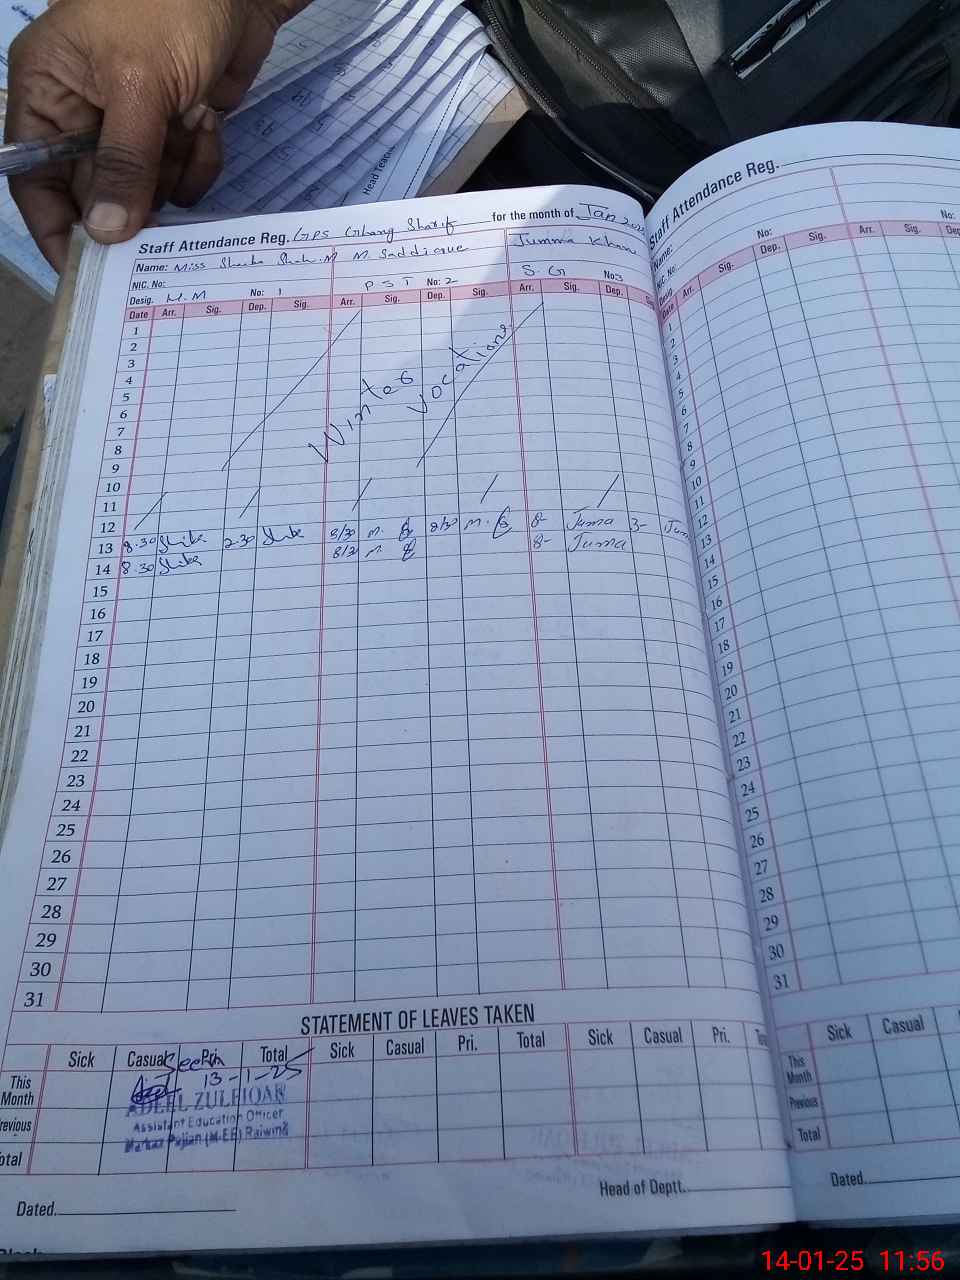 Head Teacher
Staff Attendance Reg. GPS Ghang Sharif for the month of Jan
Name: Miss M. Saddique Jumma Khan
NIC. No:
Desig. H.M No: 1 PST No: 2 S.G No: 3
Date Arr. Sig. Dep. Sig. Arr. Sig. Dep. Sig. Arr. Sig. Dep.
1
2
3
4
5
6
7
8
9
Winter Vocations
10
11
12
13 8.30 2.30 8/30 M. 2/30 M. 8- Juma 3- Juma
14 8.30 8/30 M. 8- Juma
15
16
17
18
19
20
21
22
23
24
25
26
27
28
29
30
31
STATEMENT OF LEAVES TAKEN
Sick Casual Pri. Total Sick Casual Pri. Total Sick Casual Pri.
This Month
Previous
Total
Seen
13-1-25
ADEEL ZULFIQAR
Assistant Education Officer
Markaz Pajian (M-EE) Raiwind
Head of Deptt.
Dated.
Staff Attendance Reg.
Name: No: No:
NIC. No:
Desig.
Date Arr. Sig. Dep. Sig. Arr. Sig.
1
2
3
4
5
6
7
8
9
10
11
12
13
14
15
16
17
18
19
20
21
22
23
24
25
26
27
28
29
30
31
Sick Casual
This Month
Previous
Total
Dated.
14-01-25 11:56